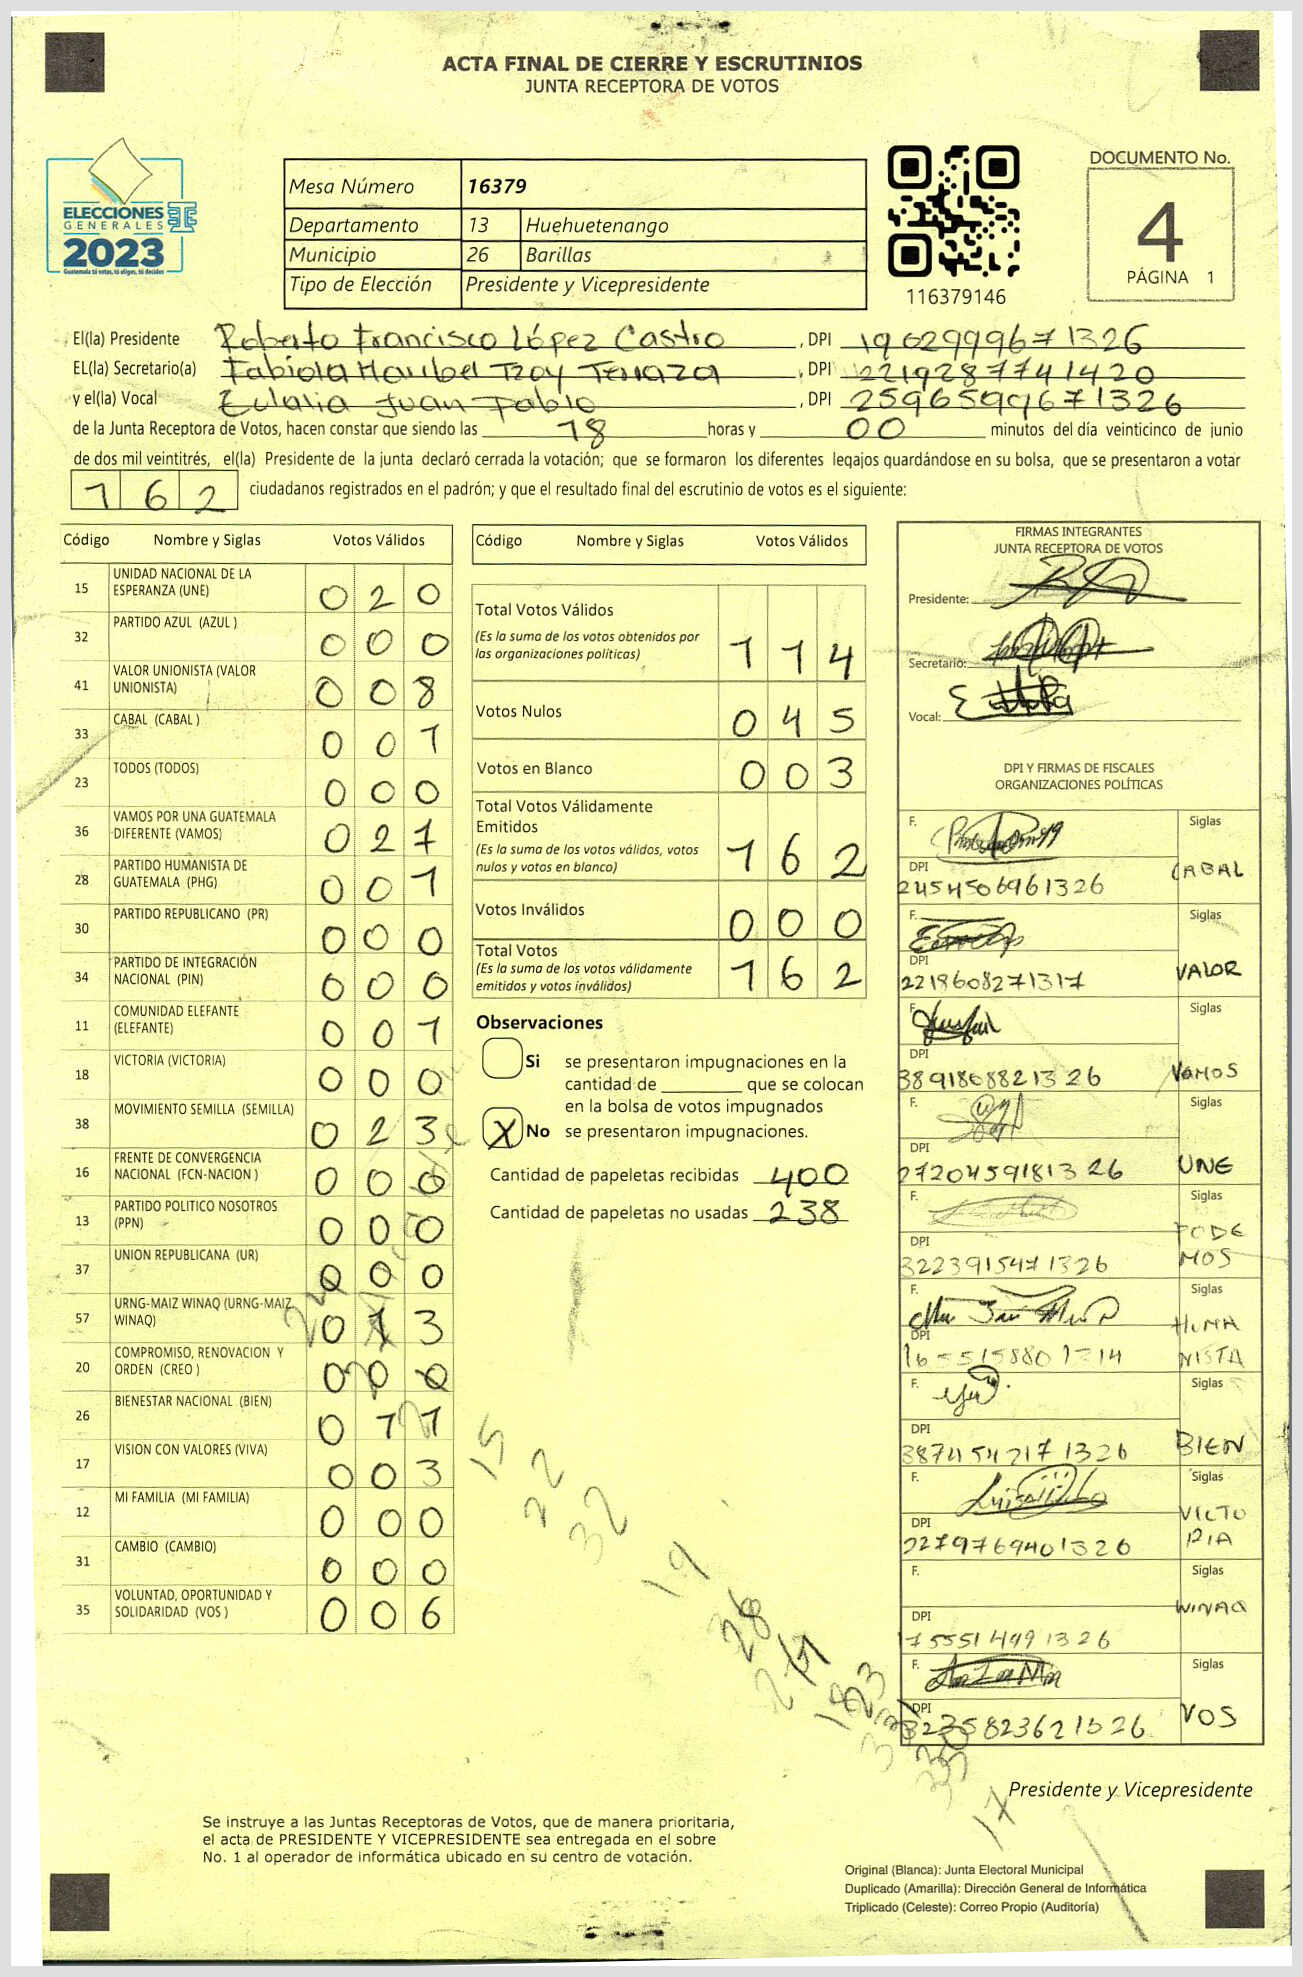 ACTA FINAL DE CIERRE Y ESCRUTINIOS
JUNTA RECEPTORA DE VOTOS
ELECCIONES
GENERALES
2023
Guatemala tú votas, tú eliges, tú decides
Mesa Número 16379
Departamento 13 Huehuetenango
Municipio 26 Barillas
Tipo de Elección Presidente y Vicepresidente
116379146
DOCUMENTO No.
4
PÁGINA 1
El(la) Presidente Roberto Francisco López Castro, DPI 1962999671326
EL(la) Secretario(a) Fabiola Maribel Tzoy Terraza, DPI 2219287741420
y el(la) Vocal Eulalia Juan Pablo, DPI 2596599671326
de la Junta Receptora de Votos, hacen constar que siendo las 18 horas y 00 minutos del día veinticinco de junio
de dos mil veintitrés, el(la) Presidente de la junta declaró cerrada la votación; que se formaron los diferentes legajos guardándose en su bolsa, que se presentaron a votar
162 ciudadanos registrados en el padrón; y que el resultado final del escrutinio de votos es el siguiente:
Código Nombre y Siglas Votos Válidos
15 UNIDAD NACIONAL DE LA ESPERANZA (UNE) 020
32 PARTIDO AZUL (AZUL ) 000
41 VALOR UNIONISTA (VALOR UNIONISTA) 008
33 CABAL (CABAL ) 001
23 TODOS (TODOS) 000
36 VAMOS POR UNA GUATEMALA DIFERENTE (VAMOS) 027
28 PARTIDO HUMANISTA DE GUATEMALA (PHG) 001
30 PARTIDO REPUBLICANO (PR) 000
34 PARTIDO DE INTEGRACIÓN NACIONAL (PIN) 000
11 COMUNIDAD ELEFANTE (ELEFANTE) 001
18 VICTORIA (VICTORIA) 000
38 MOVIMIENTO SEMILLA (SEMILLA) 023
16 FRENTE DE CONVERGENCIA NACIONAL (FCN-NACION ) 000
13 PARTIDO POLITICO NOSOTROS (PPN) 000
37 UNION REPUBLICANA (UR) 000
57 URNG-MAIZ WINAQ (URNG-MAIZ WINAQ) 013
20 COMPROMISO, RENOVACION Y ORDEN (CREO ) 000
26 BIENESTAR NACIONAL (BIEN) 011
17 VISION CON VALORES (VIVA) 003
12 MI FAMILIA (MI FAMILIA) 000
31 CAMBIO (CAMBIO) 000
35 VOLUNTAD, OPORTUNIDAD Y SOLIDARIDAD (VOS ) 006
Código Nombre y Siglas Votos Válidos
Total Votos Válidos
(Es la suma de los votos obtenidos por
las organizaciones políticas) 114
Votos Nulos 045
Votos en Blanco 003
Total Votos Válidamente
Emitidos
(Es la suma de los votos válidos, votos
nulos y votos en blanco) 162
Votos Inválidos 000
Total Votos
(Es la suma de los votos válidamente
emitidos y votos inválidos) 162
Observaciones
Si se presentaron impugnaciones en la
cantidad de que se colocan
en la bolsa de votos impugnados
X No se presentaron impugnaciones.
Cantidad de papeletas recibidas 400
Cantidad de papeletas no usadas 238
15
22
32
19
28
17
FIRMAS INTEGRANTES
JUNTA RECEPTORA DE VOTOS
Presidente:
Secretario:
Vocal:
DPI Y FIRMAS DE FISCALES
ORGANIZACIONES POLÍTICAS
F. Siglas
DPI CABAL
2454506961326
F. Siglas
DPI VALOR
2219608271317
F. Siglas
DPI VAMOS
3891808821326
F. Siglas
DPI UNE
2720459181326
F. Siglas
DPI PODEMOS
3223915471326
F. Siglas
DPI HUMANISTA
1655158801314
F. Siglas
DPI BIEN
3874542171326
F. Siglas
DPI VICTORIA
2279769401326
F. Siglas
DPI WINAQ
1755514991326
F. Siglas
DPI VOS
3235823621326
Presidente y Vicepresidente
Se instruye a las Juntas Receptoras de Votos, que de manera prioritaria,
el acta de PRESIDENTE Y VICEPRESIDENTE sea entregada en el sobre
No. 1 al operador de informática ubicado en su centro de votación.
Original (Blanca): Junta Electoral Municipal
Duplicado (Amarilla): Dirección General de Informática
Triplicado (Celeste): Correo Propio (Auditoría)